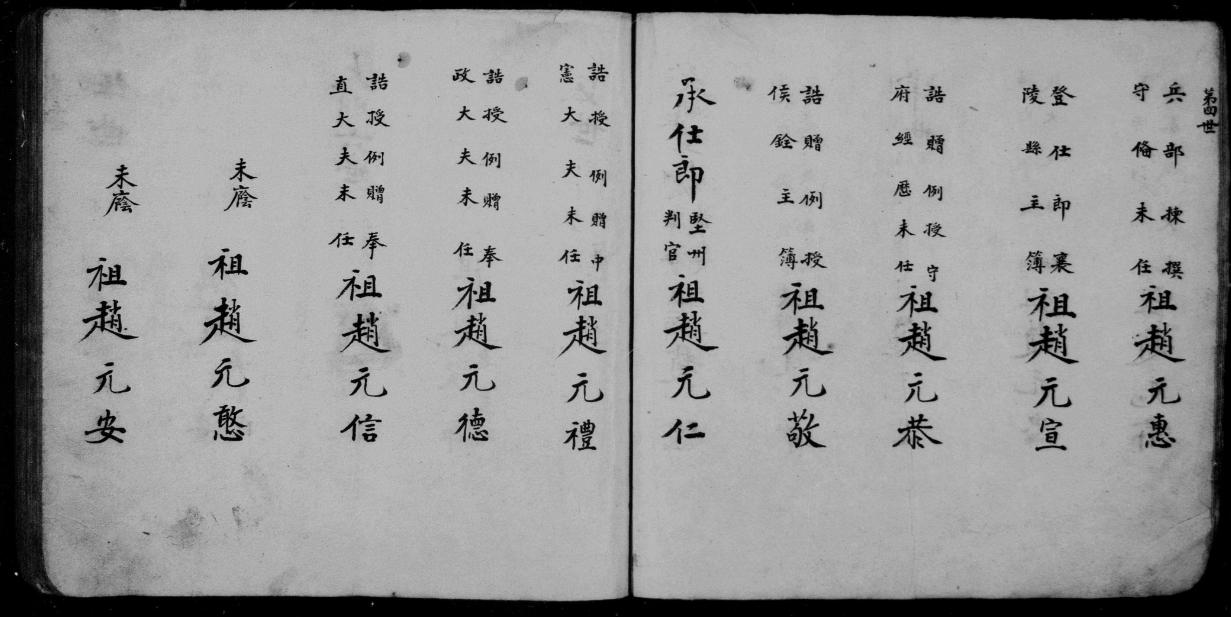 第四世
兵部揀撰
守備未任
祖趙元惠
登仕郎襄
陵縣主簿
祖趙元宣
誥贈例授守
府經歷未仕
祖趙元恭
誥贈例授
候銓主簿
祖趙元敬
承仕郎
堅州
判官
祖趙元仁
誥授例贈中
憲大夫未任
祖趙元禮
誥授例贈奉
政大夫未任
祖趙元德
誥授例贈奉
直大夫未任
祖趙元信
未廕
祖趙元憨
未廕
祖趙元安